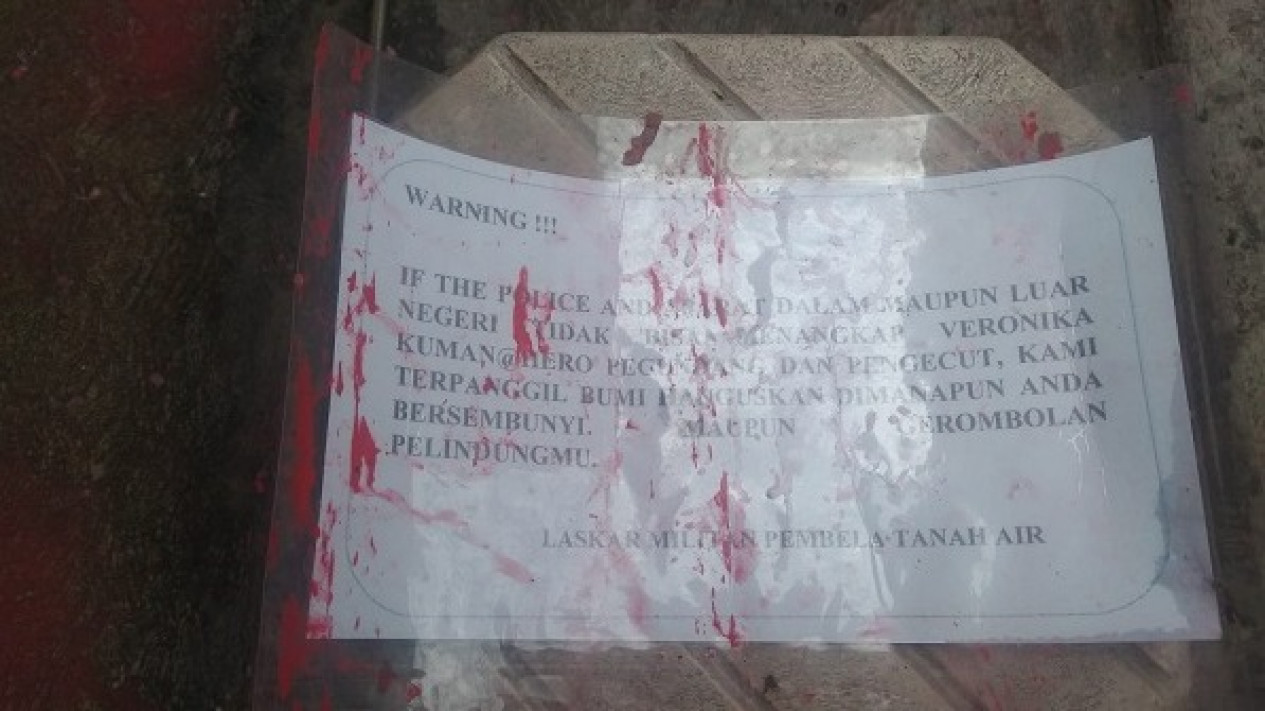 WARNING !!!
IF THE POLICE AND APARAT DALAM MAUPUN LUAR
NEGERI TIDAK BISA MENANGKAP VERONIKA
KUMAN@HERO PEGUNYANG DAN PENGECUT, KAMI
TERPANGGIL BUMI HANGUSKAN DIMANAPUN ANDA
BERSEMBUNYI. MAUPUN GEROMBOLAN
PELINDUNGMU.
LASKAR MILITAN PEMBELA TANAH AIR